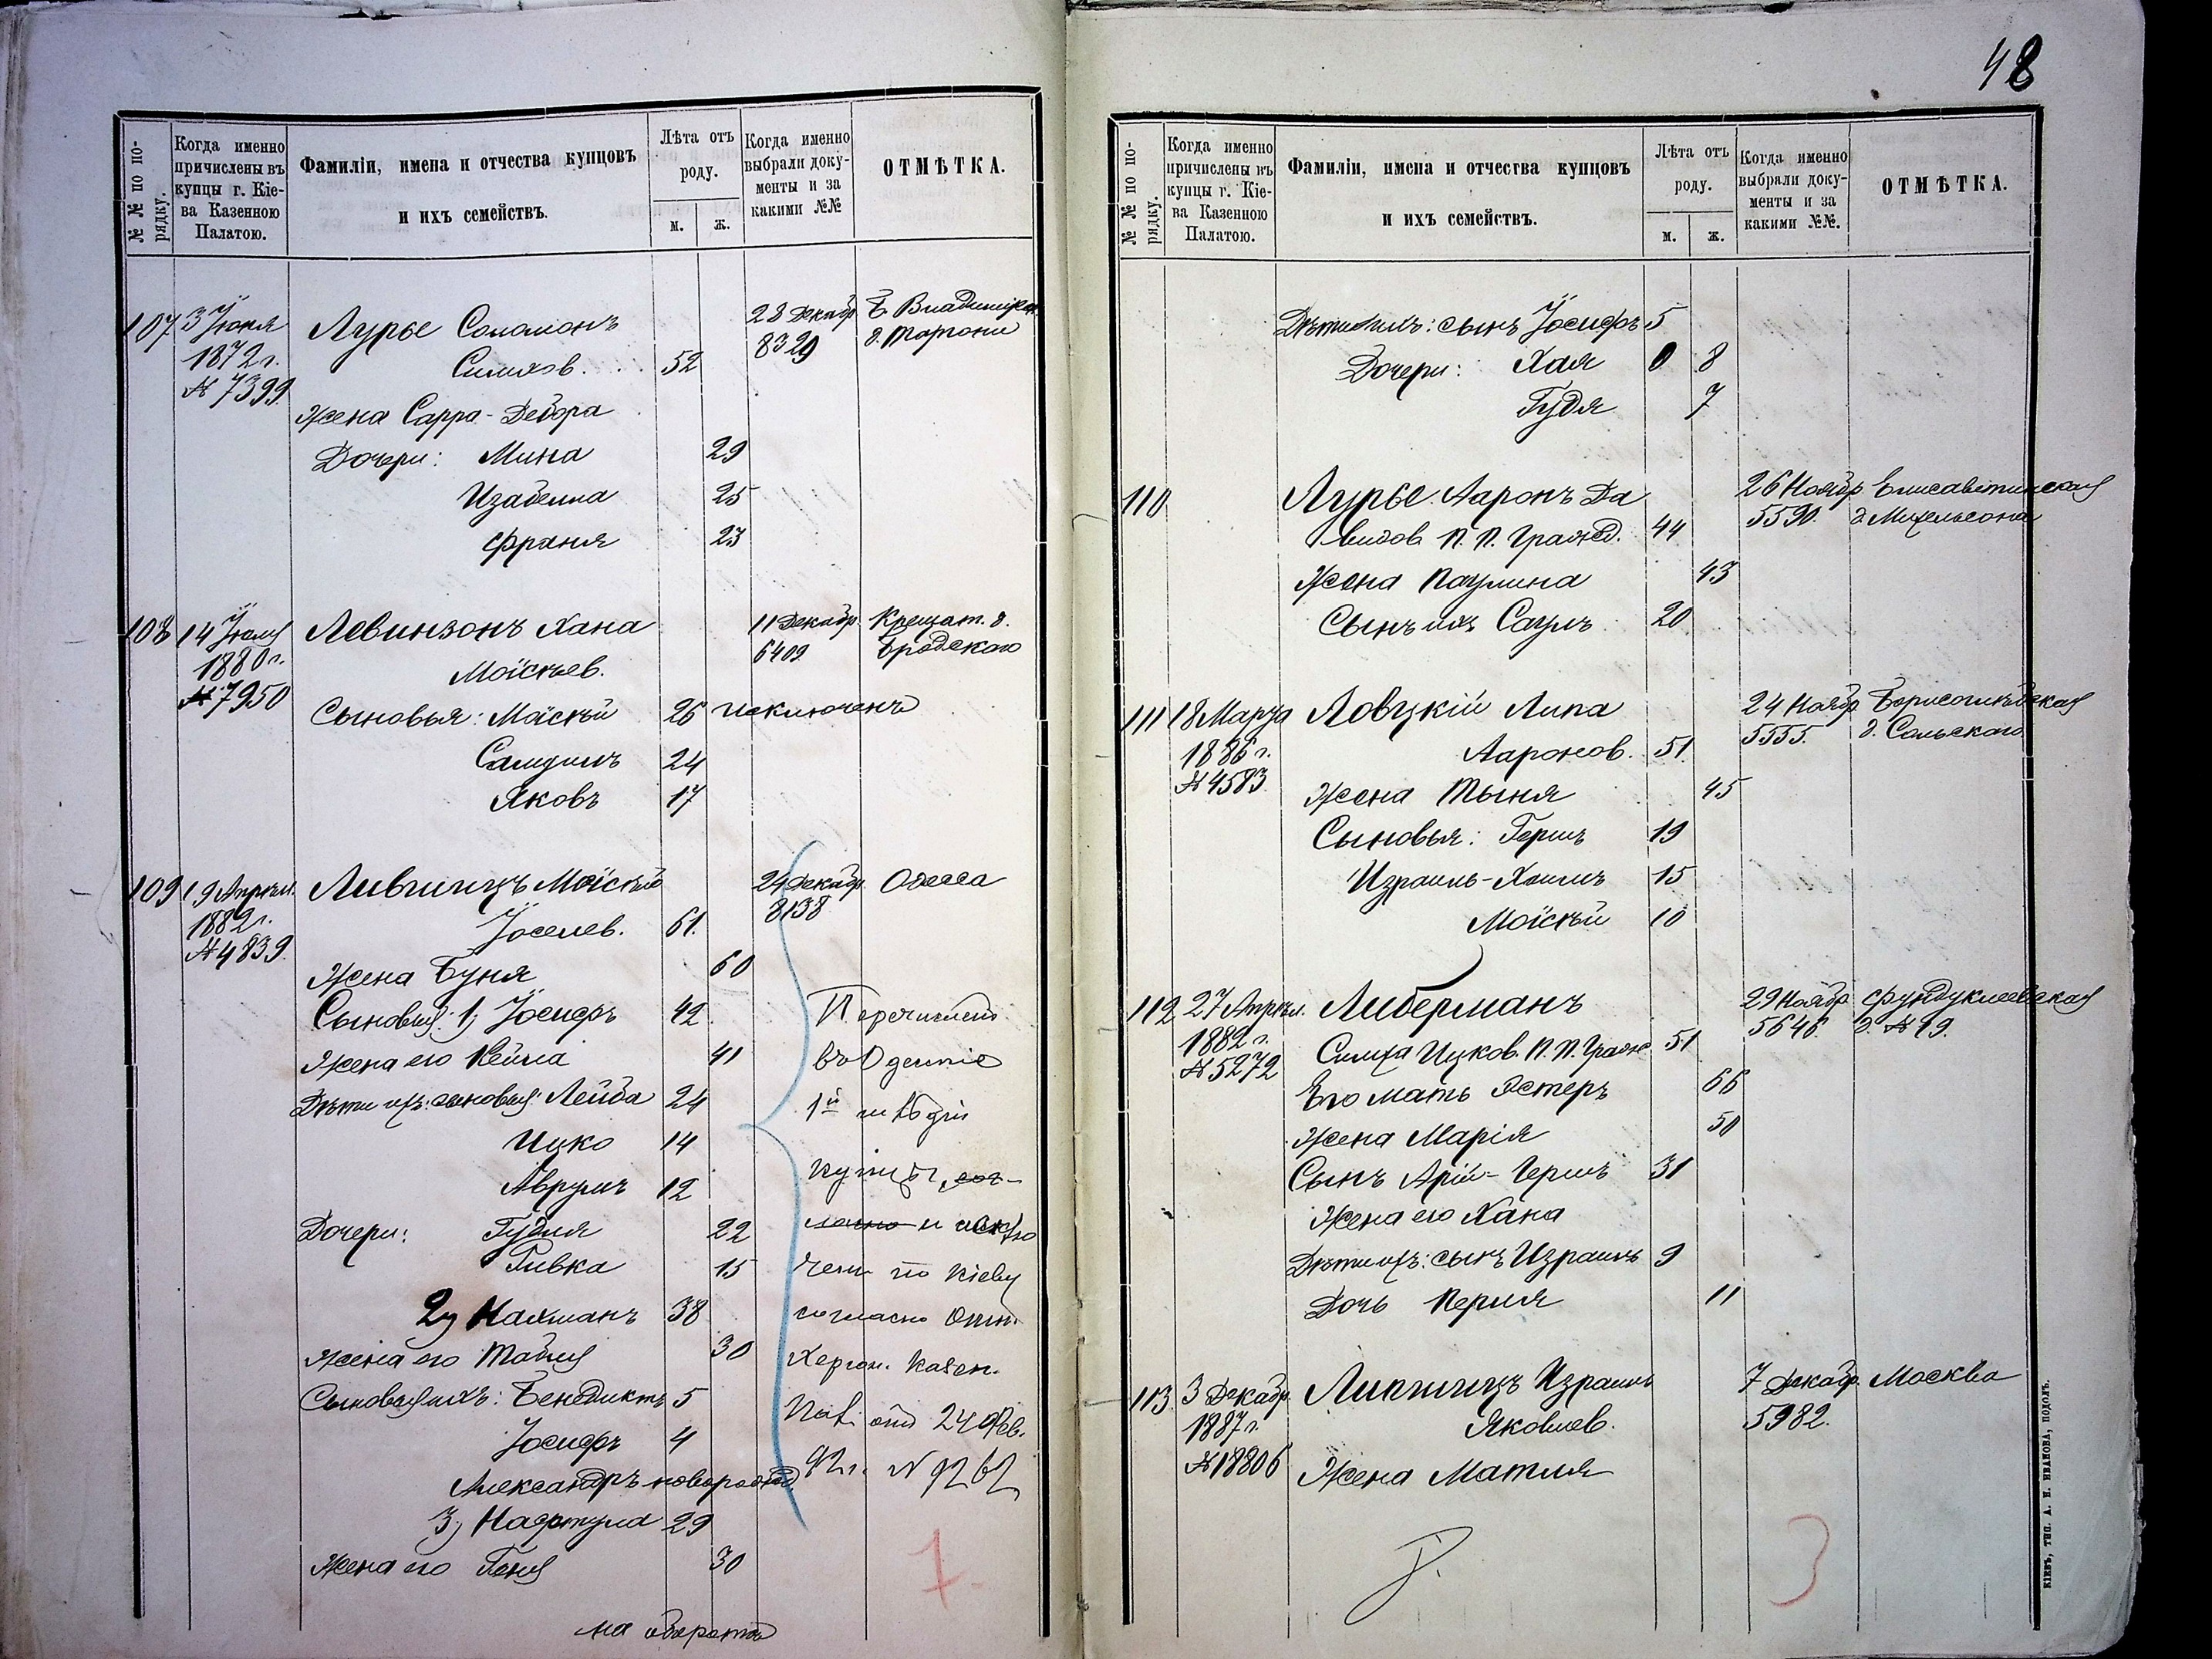 48
№ № по по-
рядку.
Когда именно
причислены въ
купцы г. Кіе-
ва Казенною
Палатою.
Фамиліи, имена и отчества купцовъ
и ихъ семействъ.
Лѣта отъ
роду.
м.
ж.
Когда именно
выбрали доку-
менты и за
какими №№
ОТМѢТКА.
107 3 Іюня Лурье Соломонъ 28 Декабр. Б Владимірск.
1872 г. Симхов. 52 8329 д. Таргони
№ 7399.
Жена Сарра-Дебора
Дочери: Мина 29
Изабелла 25
Франя 23
108 14 Іюля Левинзонъ Хана 11 Декабр. Крещат. д.
1880 г. Моісѣев. 6409. Бродскаго
№ 7950
Сыновья: Моісѣй 26 исключенъ
Самуилъ 24
Яковъ 17
109 19 Апрѣл. Лившицъ Моісѣй 24 Декабр. Одесса
1882 г. Іоселев. 61. 8138
№ 4839.
Жена Буня 60
Сыновья: 1, Іосифъ 42. Перечисленъ
Жена его Кейла 41 въ Одесскіе
Дѣти ихъ: сыновья: Лейба 24 1й гильдіи
Ицко 14
Аврумъ 12 купцы, сог-
Дочери: Гудля 22 ласно и исклю
Ривка 15 чен по Кіеву
2, Нахманъ 38 согласно отн.
Жена его Тобля 30 Херсон. Казен.
Сыновья ихъ: Бендиктъ 5
Іосифъ 4 Пал. отъ 24 Фев.
Александръ новорожд. 92 г. № 9262
3, Нафтула 29
Жена его Геня 30
1.
на оборотѣ
№ № по по-
рядку.
Когда именно
причислены въ
купцы г. Кіе-
ва Казенною
Палатою.
Фамиліи, имена и отчества купцовъ
и ихъ семействъ.
Лѣта отъ
роду.
м.
ж.
Когда именно
выбрали доку-
менты и за
какими №№.
ОТМѢТКА.
Дѣти ихъ: сынъ Іосифъ 5
Дочери: Хая 0 8
Гудя 7
110 Лурье Ааронъ Да 26 Ноябр. Елисаветинская
видов. П. П. Гражд. 44 5590. д. Михельсона
Жена Паулина 43
Сынъ ихъ Саулъ 20
111 18 Марта Ловцкій Липа 24 Ноябр. Борисоглѣбская
1886 г. Ааронов. 51. 5555. д. Сольскаго
№ 4583.
Жена Тыня 45
Сыновья: Гершъ 19
Израиль-Хаимъ 15
Моісѣй 10
112 27 Апрѣл. Либерманъ 29 Ноябр. Фундуклеевская
1882 г. Симха Ицков. П. П. Гражд 51 5646. д. № 19.
№ 5272
Его мать Эстеръ 66
Жена Марія 50
Сынъ Арій-Гершъ 31
Жена его Хана
Дѣти ихъ: сынъ Израиль 9
Дочь Перля 11
113. 3 Декабр. Липшицъ Израиль 7 Декабр. Москва
1887 г. Яковлев. 5982.
№ 18806 Жена Матля
3
КІЕВЪ, ТИП. А. Н. ИВАНОВА, ПОДОЛЪ.